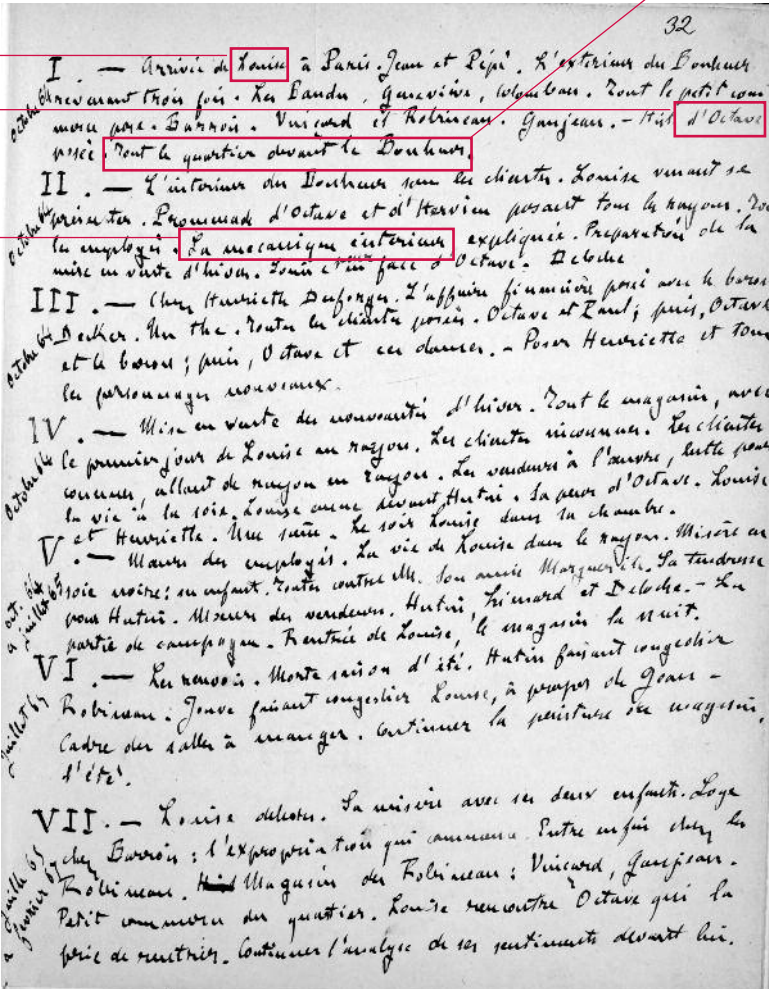 32
I. — Arrivée de Louise à Paris. Jean et Pépé. L'extérieur du Bonheur
octobre 64 revenant trois fois. Les Baudu, Geneviève, Colomban. Tout le petit com
merce posé. Bourrois. Vinçard et Robineau. Gaujean. – Hist d'Octave
posée. Tout le quartier devant le Bonheur.
II. — L'intérieur du Bonheur sans les clientes. Louise venant se
octobre 64 présenter. Promenade d'Octave et d'Hervieu posant tous les rayons. Tous
les employés. La mécanique intérieure expliquée. Préparation de la
mise en vente d'hiver. Louise en face d'Octave. Deloche
III. — Chez Henriette Desforges. L'affaire financière posée avec le baron
octobre 64 Decker. Un thé. Toutes les clientes posées. Octave et Paul; puis, Octave
et le baron; puis, Octave et ces dames. – Poser Henriette et tous
les personnages nouveaux.
IV. — Mise en vente des nouveautés d'hiver. Tout le magasin, avec
octobre 64 le premier jour de Louise au rayon. Les clientes inconnues. Les clientes
connues, allant de rayon en rayon. Les vendeurs à l'œuvre, lutte pour
la vie à la soie. Louise devant Hutin. La peur d'Octave. Louise
et Henriette. Une scène. Le soir Louise dans sa chambre.
V. — Mœurs des employés. La vie de Louise dans le rayon. Misère en
oct. 64 à juillet 65 soie noire; son enfant. Toutes contre elle. Son amie Marguerite. Sa tendresse
pour Hutin. Mœurs des vendeurs. Hutin, Liénard et Deloche. – La
partie de campagne. Rentrée de Louise, le magasin la nuit.
VI. — Les renvois. Morte saison d'été. Hutin faisant congédier
juillet 65 Robineau. Jouve faisant congédier Louise, à propos de Jean –
Cadre des salles à manger. Continuer la peinture du magasin,
l'été.
VII. — Louise dehors. Sa misère avec ses deux enfants. Loge
juillet 65 à février 67 chez Bourrois; l'expropriation qui commence. Entre enfin chez les
Robineau. Magasin des Robineau; Vinçard, Gaujean.
Petit commerce du quartier. Louise rencontre Octave qui la
prie de rentrer. Continuer l'analyse de ses sentiments devant lui.